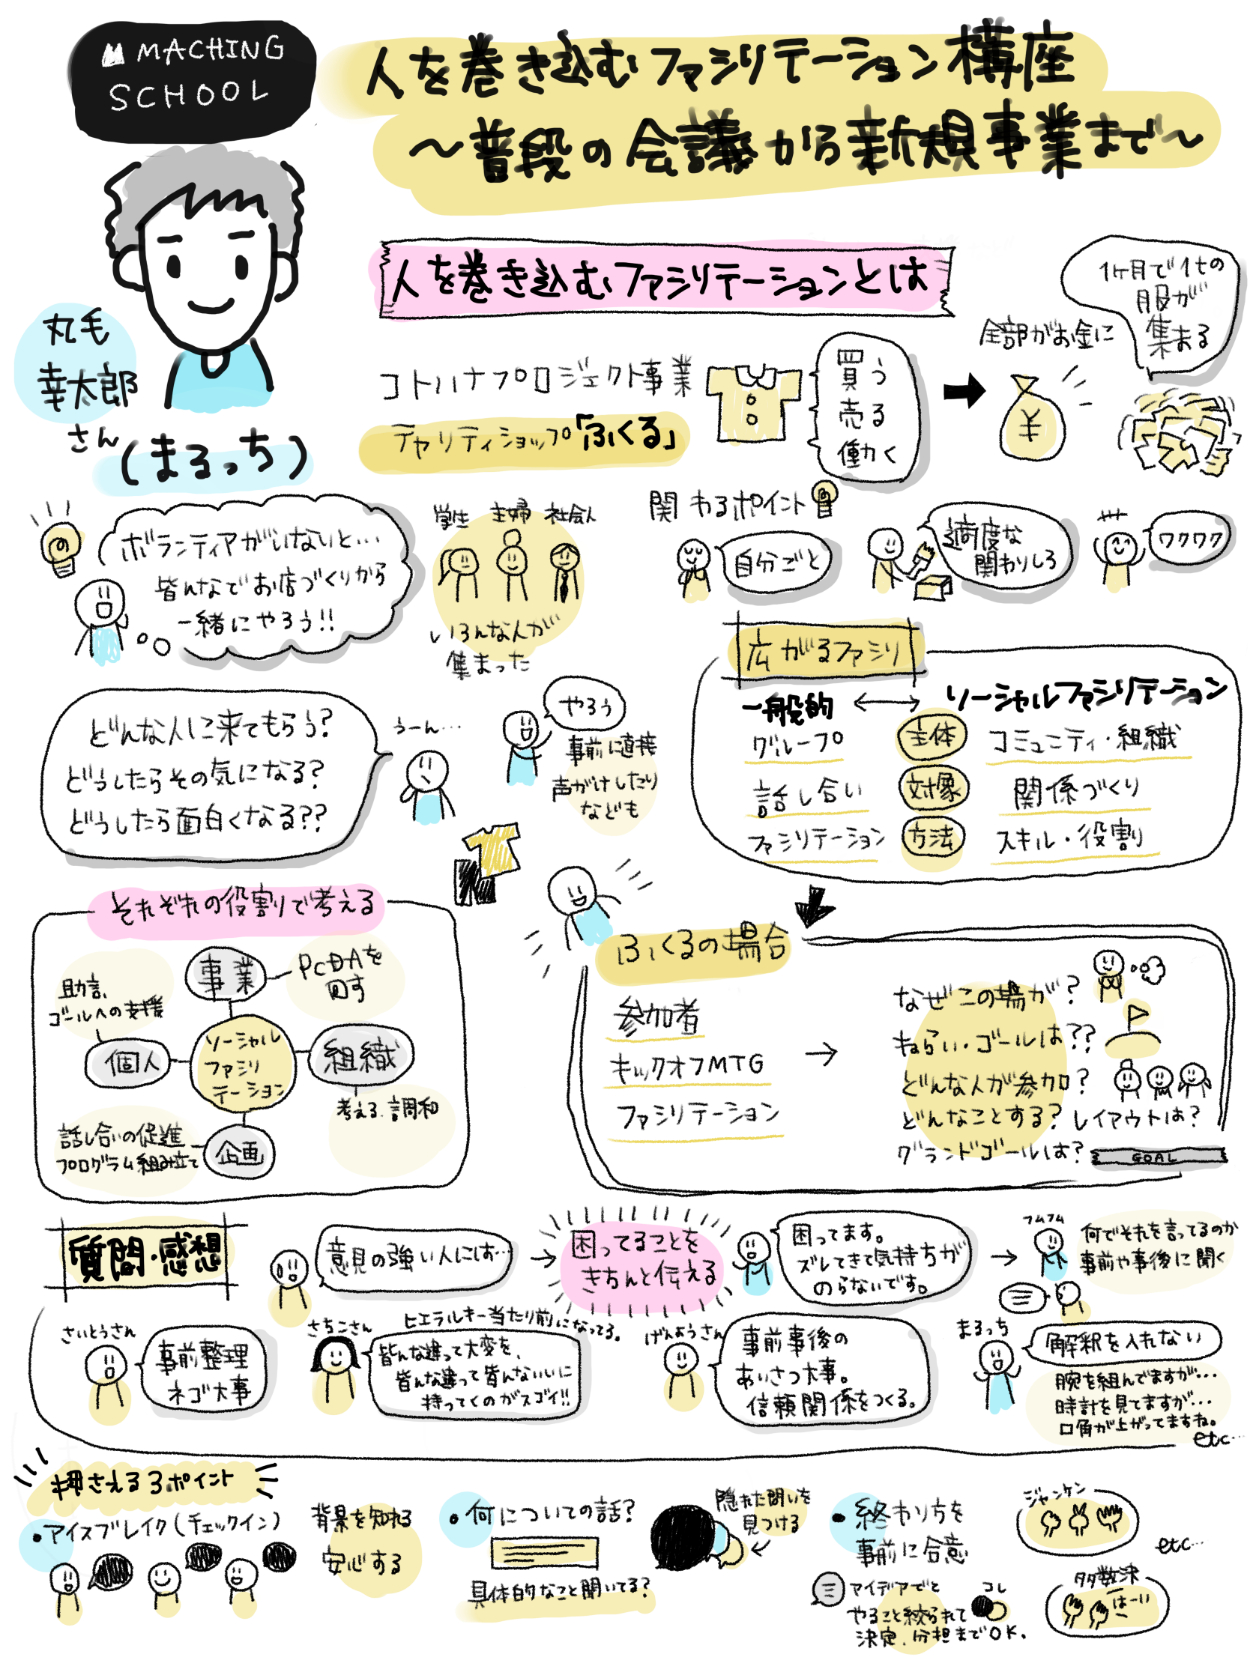 MACHING
SCHOOL
人を巻き込むファシリテーション講座
〜普段の会議から新規事業まで〜
丸毛
幸太郎
さん
(まるっち)
人を巻き込むファシリテーションとは
コトハナプロジェクト事業
チャリティショップ「ふくる」
買う
売る
働く
全部がお金に
¥
1ヶ月で1tの
服が
集まる
ボランティアがいないと…
皆んなでお店づくりから
一緒にやろう!!
学生 主婦 社会人
いろんな人が
集まった
関わるポイント
自分ごと
適度な
関わりしろ
ワクワク
どんな人に来てもらう?
どうしたらその気になる?
どうしたら面白くなる??
うーん…
やろう
事前に直接
声がけしたり
なども
広がるファシリ
一般的
ソーシャルファシリテーション
グループ 主体 コミュニティ・組織
話し合い 対象 関係づくり
ファシリテーション 方法 スキル・役割
それぞれの役割で考える
事業
PCDAを
回す
助言、
ゴールへの支援
個人
ソーシャル
ファシリ
テーション
組織
考える、調和
話し合いの促進
プログラム組み立て
企画
ふくるの場合
参加者
キックオフMTG
ファシリテーション
なぜこの場が?
ねらい・ゴールは??
どんな人が参加?
どんなことする?レイアウトは?
グランドゴールは?
GOAL
質問・感想
意見の強い人には…
困ってることを
きちんと伝える
困ってます。
ズレてきて気持ちが
のらないです。
フムフム
何でそれを言ってるのか
事前や事後に聞く
さいとうさん
事前整理
ネゴ大事
さちこさん
ヒエラルキー当たり前になってる。
皆んな違って大変を、
皆んな違って皆んないいに
持ってくのがスゴイ!!
げんようさん
事前事後の
あいさつ大事。
信頼関係をつくる。
まるっち
解釈を入れない
腕を組んでますが…
時計を見てますが…
口角が上がってますね。
etc…
押さえる3ポイント
・アイスブレイク(チェックイン)
背景を知れる
安心する
・何についての話?
具体的なこと聞いてる?
隠れた問いを
見つける
・終わり方を
事前に合意
アイデアでと
やること絞られて
決定、分担までOK.
コレ
ジャンケン
etc…
多数決
はーい